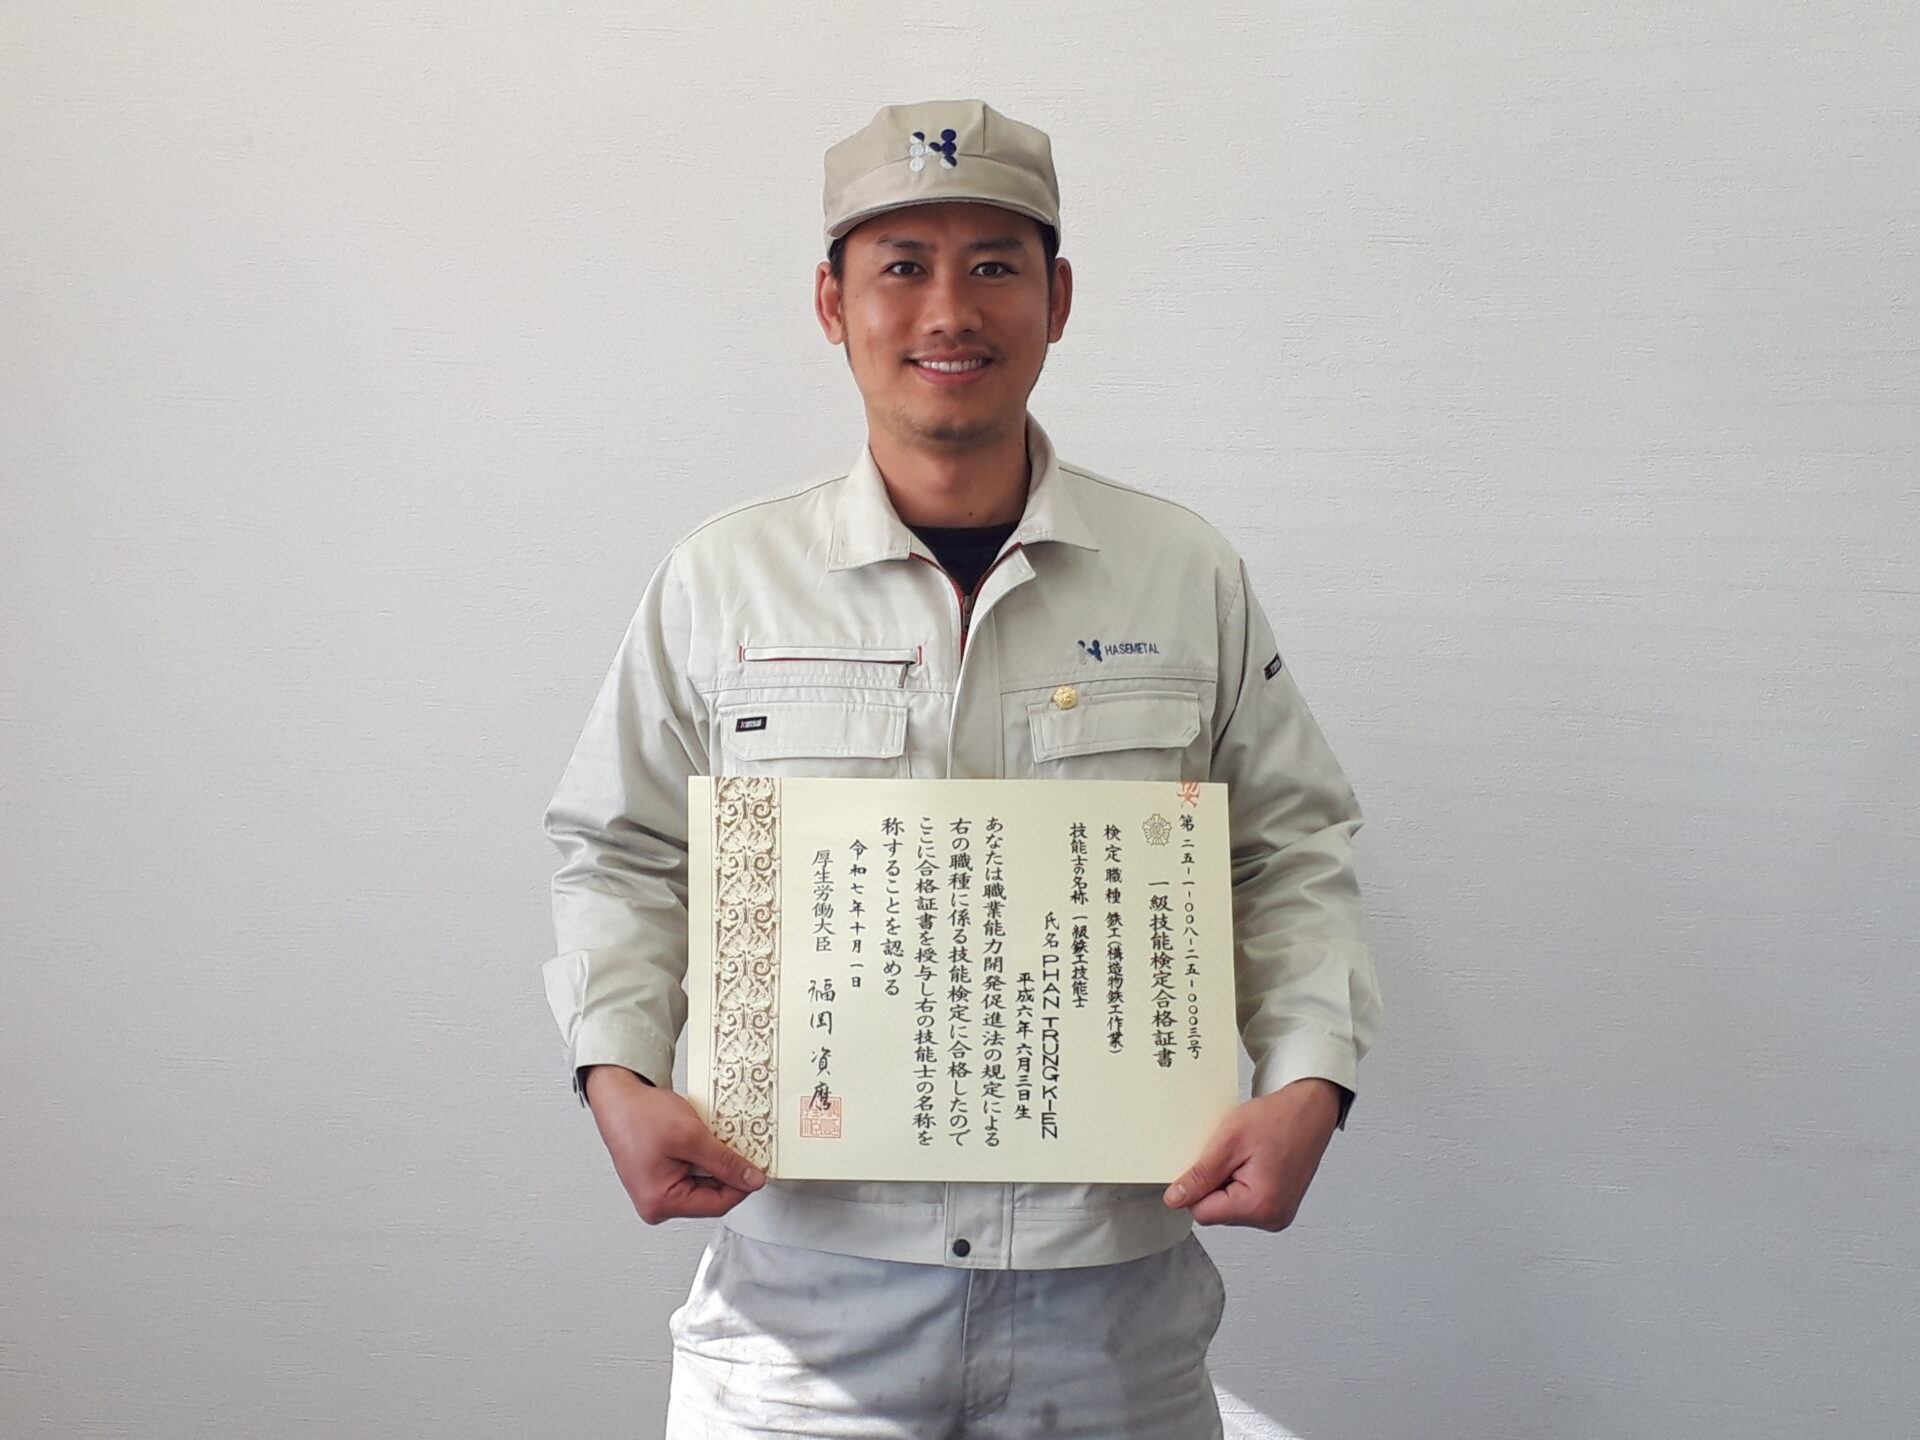 HASEMETAL
kansai
第二五-一-〇〇八-二五-〇〇〇三号
一級技能検定合格証書
検定職種 鉄工(構造物鉄工作業)
技能士の名称 一級鉄工技能士
氏名 PHAN TRUNG KIEN
平成六年六月三日生
あなたは職業能力開発促進法の規定による
右の職種に係る技能検定に合格したので
ここに合格証書を授与し右の技能士の名称を
称することを認める
令和七年十月一日
厚生労働大臣 福岡資麿